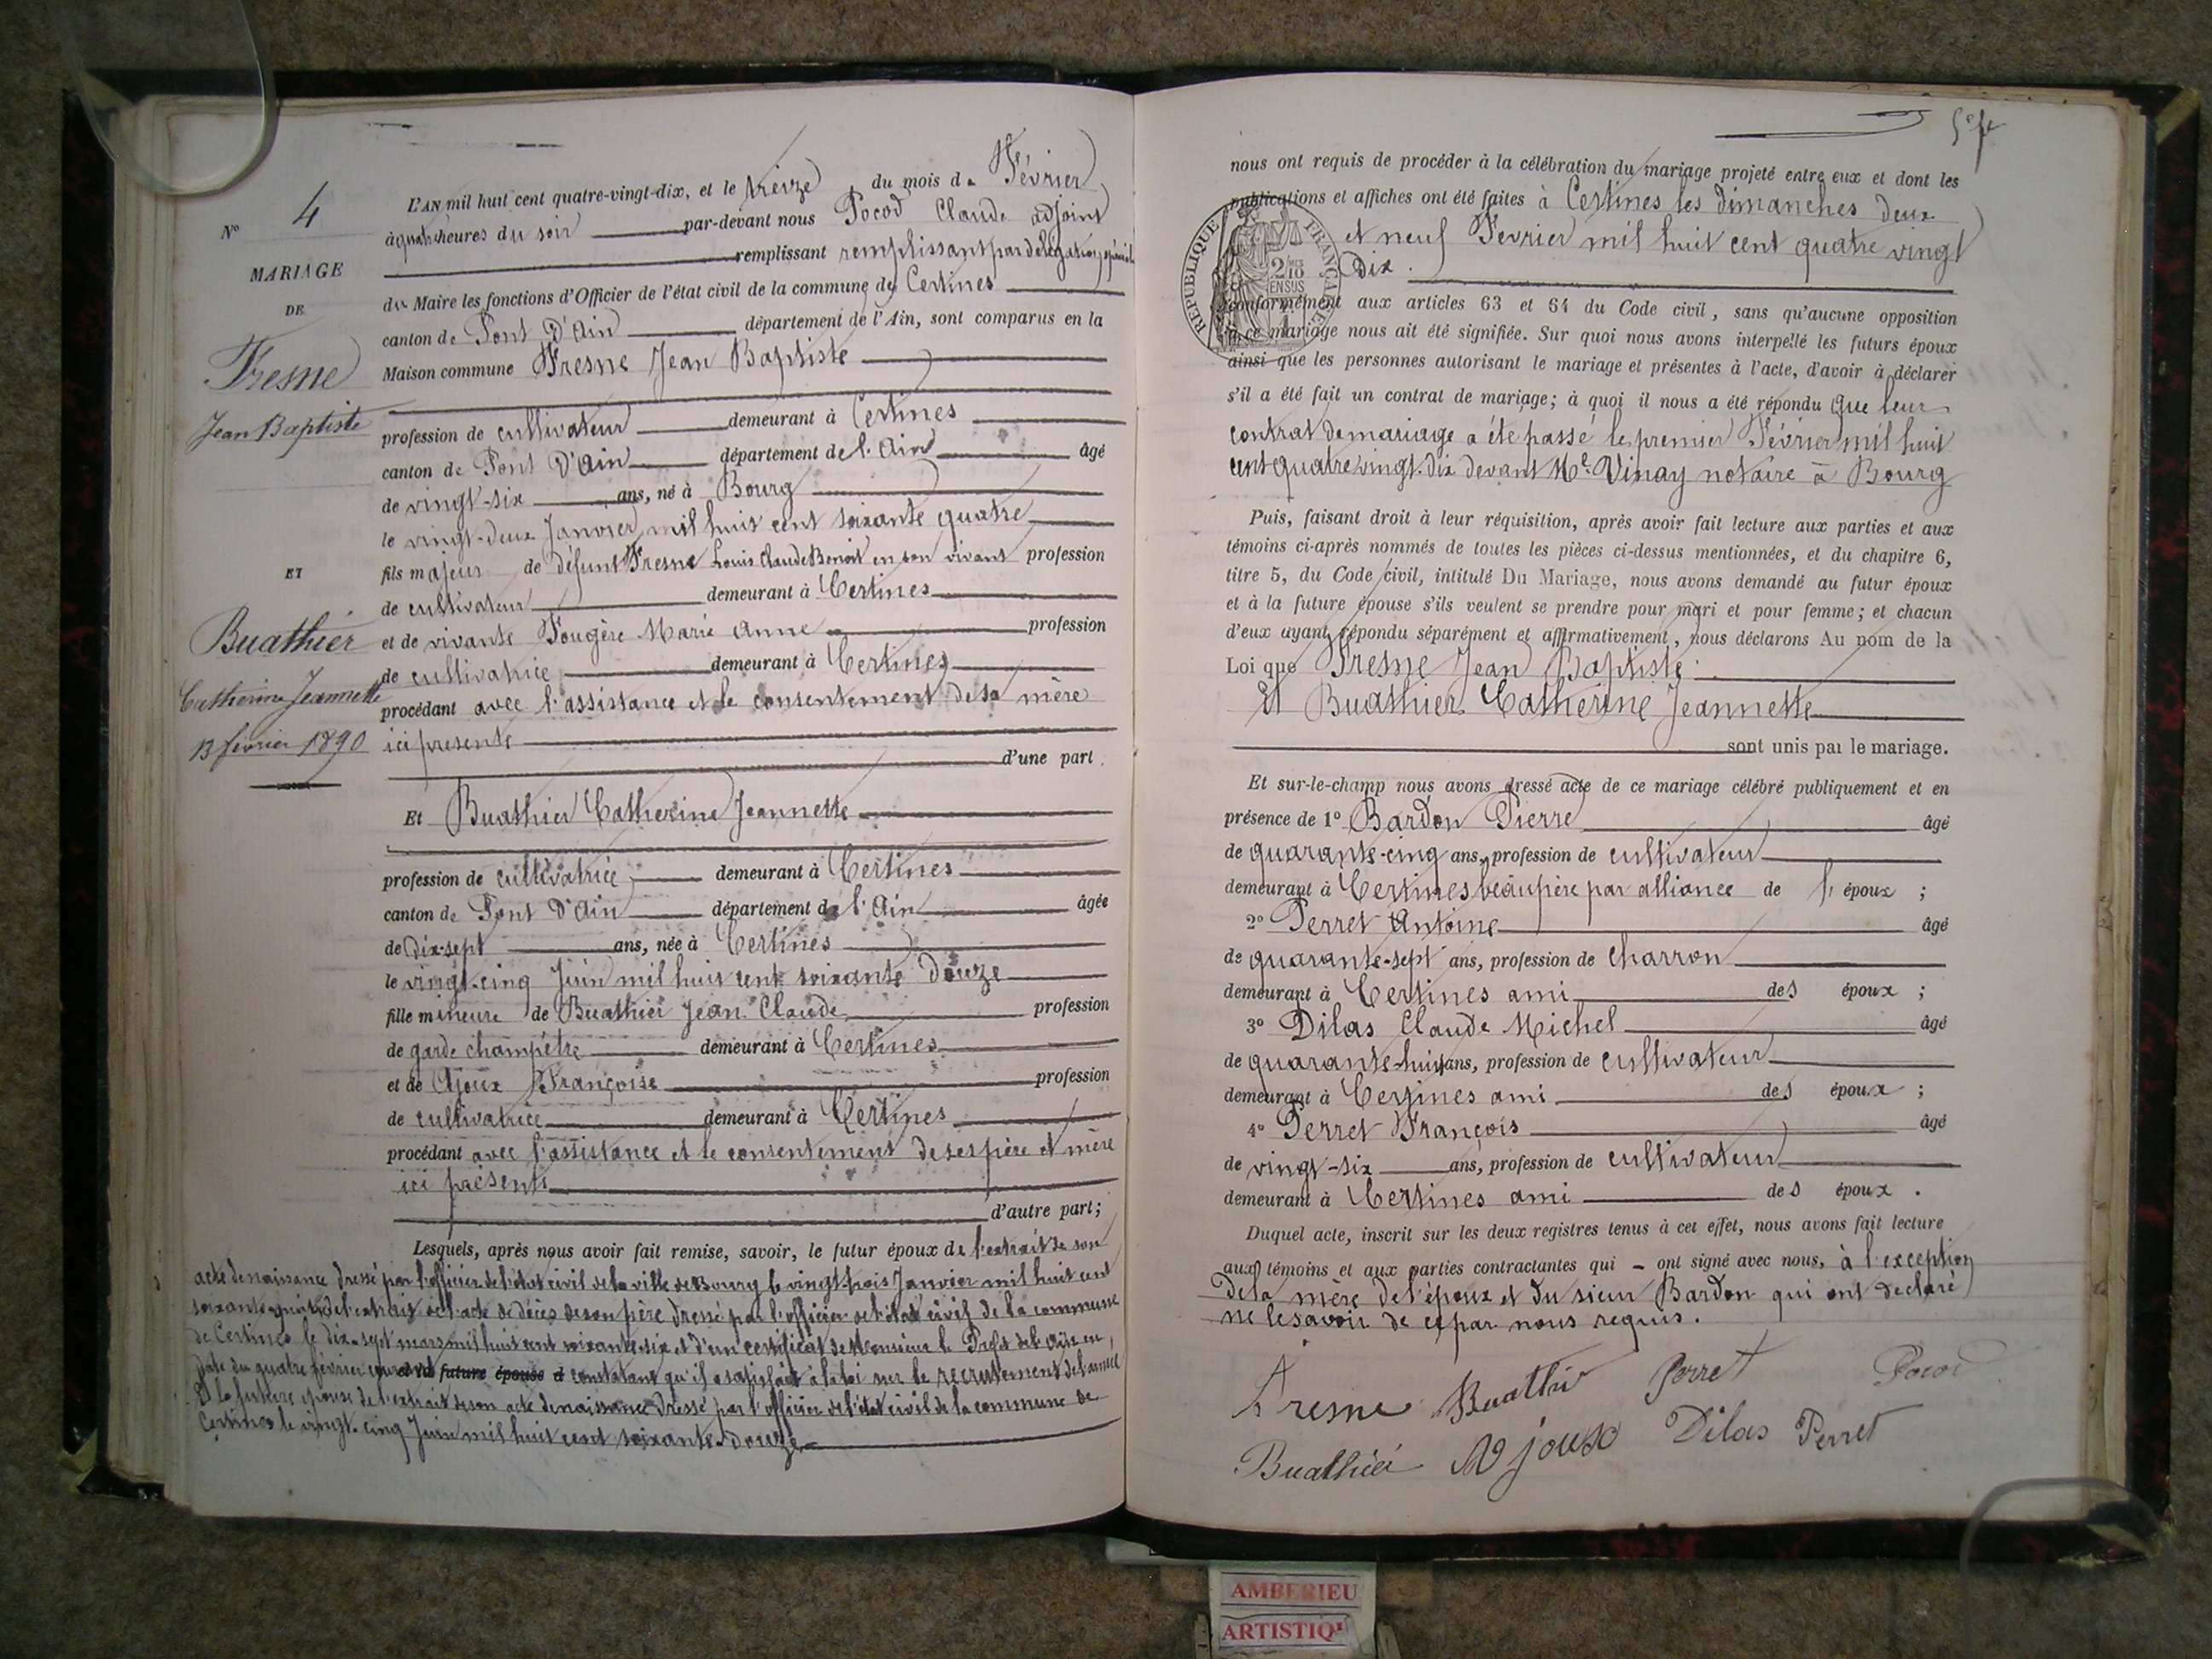 L'AN mil huit cent quatre-vingt-dix, et le treize du mois de Février
N° 4
à quatre heures du soir par-devant nous Pocod Claude adjoint
remplissant remplissant par délégation spéciale
MARIAGE
du Maire les fonctions d'Officier de l'état civil de la commune de Certines
DE
canton de Pont D'Ain département de l'Ain, sont comparus en la
Fresne
Maison commune Fresne Jean Baptiste
Jean Baptiste
profession de cultivateur demeurant à Certines
canton de Pont D'Ain département de l'Ain âgé
de vingt-six ans, né à Bourg
le vingt-deux Janvier mil huit cent soixante quatre
ET
fils majeur de défunt Fresne Louis Claude Benoit en son vivant profession
de cultivateur demeurant à Certines
Buathier
et de vivante Fougère Marie Anne profession
de cultivatrice demeurant à Certines
Catherine Jeannette
procédant avec l'assistance et le consentement de sa mère
13 février 1890
ici presente
d'une part.
Et Buathier Catherine Jeannette
profession de cultivatrice demeurant à Certines
canton de Pont D'Ain département de l'Ain âgée
de dix-sept ans, née à Certines
le vingt-cinq Juin mil huit cent soixante douze
fille mineure de Buathier Jean Claude profession
de garde champêtre demeurant à Certines
et de Ajoux Françoise profession
de cultivatrice demeurant à Certines
procédant avec l'assistance et le consentement de ses père et mère
ici présents
d'autre part;
Lesquels, après nous avoir fait remise, savoir, le futur époux de l'extrait de son
acte de naissance dressé par l'officier de l'état civil de la ville de Bourg le vingt trois Janvier mil huit cent
soixante quatre, de l'extrait de l'acte de décès de son père dressé par l'officier de l'état civil de la commune
de Certines le dix-sept mars mil huit cent soixante-six et d'un certificat de Monsieur le Préfet de l'Ain en
date du quatre février courant et la future épouse d constatant qu'il a satisfait à la loi sur le recrutement de l'armée
Et la future épouse de l'extrait de son acte de naissance dressé par l'officier de l'état civil de la commune de
Certines le vingt-cinq Juin mil huit cent soixante-douze
nous ont requis de procéder à la célébration du mariage projeté entre eux et dont les
publications et affiches ont été faites à Certines les dimanches deux
et neuf Fevrier mil huit cent quatre vingt
dix.
RÉPUBLIQUE FRANÇAISE
2/10 EN SUS
conformément aux articles 63 et 64 du Code civil, sans qu'aucune opposition
à ce mariage nous ait été signifiée. Sur quoi nous avons interpellé les futurs époux
ainsi que les personnes autorisant le mariage et présentes à l'acte, d'avoir à déclarer
s'il a été fait un contrat de mariage; à quoi il nous a été répondu que leur
contrat de mariage a été passé le premier Février mil huit
cent quatre vingt-dix devant Me Vinay notaire à Bourg
Puis, faisant droit à leur réquisition, après avoir fait lecture aux parties et aux
témoins ci-après nommés de toutes les pièces ci-dessus mentionnées, et du chapitre 6,
titre 5, du Code civil, intitulé Du Mariage, nous avons demandé au futur époux
et à la future épouse s'ils veulent se prendre pour mari et pour femme; et chacun
d'eux ayant répondu séparément et affirmativement, nous déclarons Au nom de la
Loi que Fresne Jean Baptiste
Et Buathier Catherine Jeannette
sont unis par le mariage.
Et sur-le-champ nous avons dressé acte de ce mariage célébré publiquement et en
présence de 1° Bardon Pierre âgé
de quarante-cinq ans, profession de cultivateur
demeurant à Certines beau père par alliance de l' époux ;
2° Perret Antoine âgé
de quarante-sept ans, profession de charron
demeurant à Certines ami des époux ;
3° Dilas Claude Michel âgé
de quarante-huit ans, profession de cultivateur
demeurant à Certines ami des époux ;
4° Perret François âgé
de vingt-six ans, profession de cultivateur
demeurant à Certines ami des époux .
Duquel acte, inscrit sur les deux registres tenus à cet effet, nous avons fait lecture
aux témoins et aux parties contractantes qui - ont signé avec nous, à l'exception
de la mère de l'époux et du sieur Bardon qui ont declaré
ne le savoir de ce par nous requis.
Fresne Buathier Perret Pocod
Buathier Ajoux Dilas Perret
AMBERIEU
ARTISTIQ